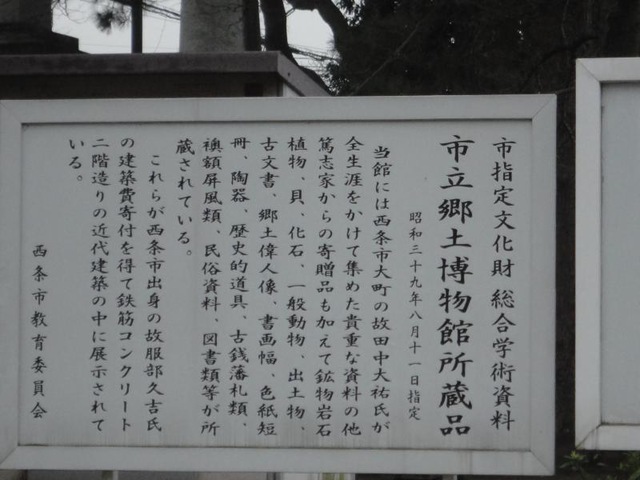 市指定文化財 総合学術資料
市立郷土博物館所蔵品
昭和三十九年八月十一日指定
当館には西条市大町の故田中大祐氏が
全生涯をかけて集めた貴重な資料の他
篤志家からの寄贈品も加えて鉱物岩石
植物、貝、化石、一般動物、出土物、
古文書、郷土偉人像、書画幅、色紙短
冊、陶器、歴史的道具、古銭藩札類、
襖額屏風類、民俗資料、図書類等が所
蔵されている。
これらが西条市出身の故服部久吉氏
の建築費寄付を得て鉄筋コンクリート
二階造りの近代建築の中に展示されて
いる。
西条市教育委員会